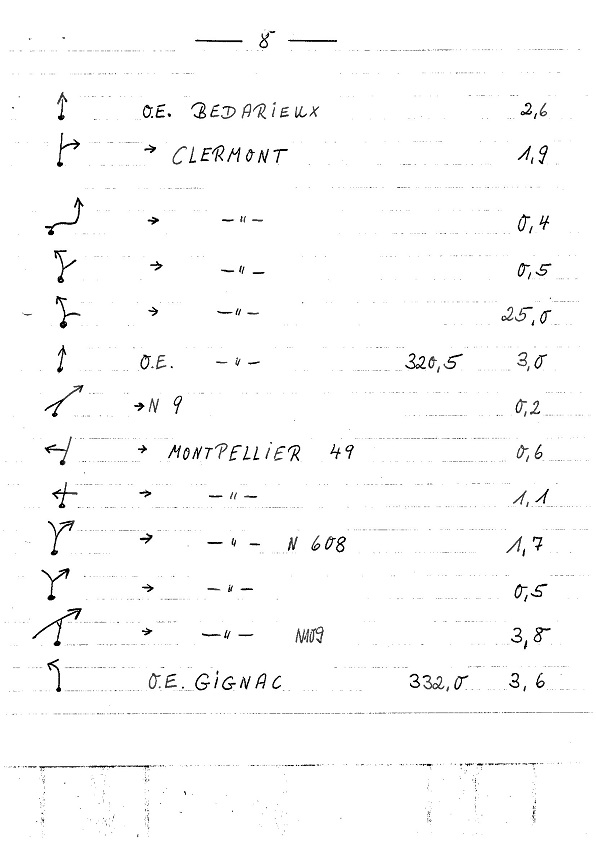 — 8 —
O.E. BEDARIEUX 2,6
→ CLERMONT 1,9
→ —"— 0,4
→ —"— 0,5
→ —"— 25,0
O.E. —"— 320,5 3,0
→ N 9 0,2
→ MONTPELLIER 49 0,6
→ —"— 1,1
→ —"— N 608 1,7
→ —"— 0,5
→ —"— N109 3,8
O.E. GIGNAC 332,0 3,6